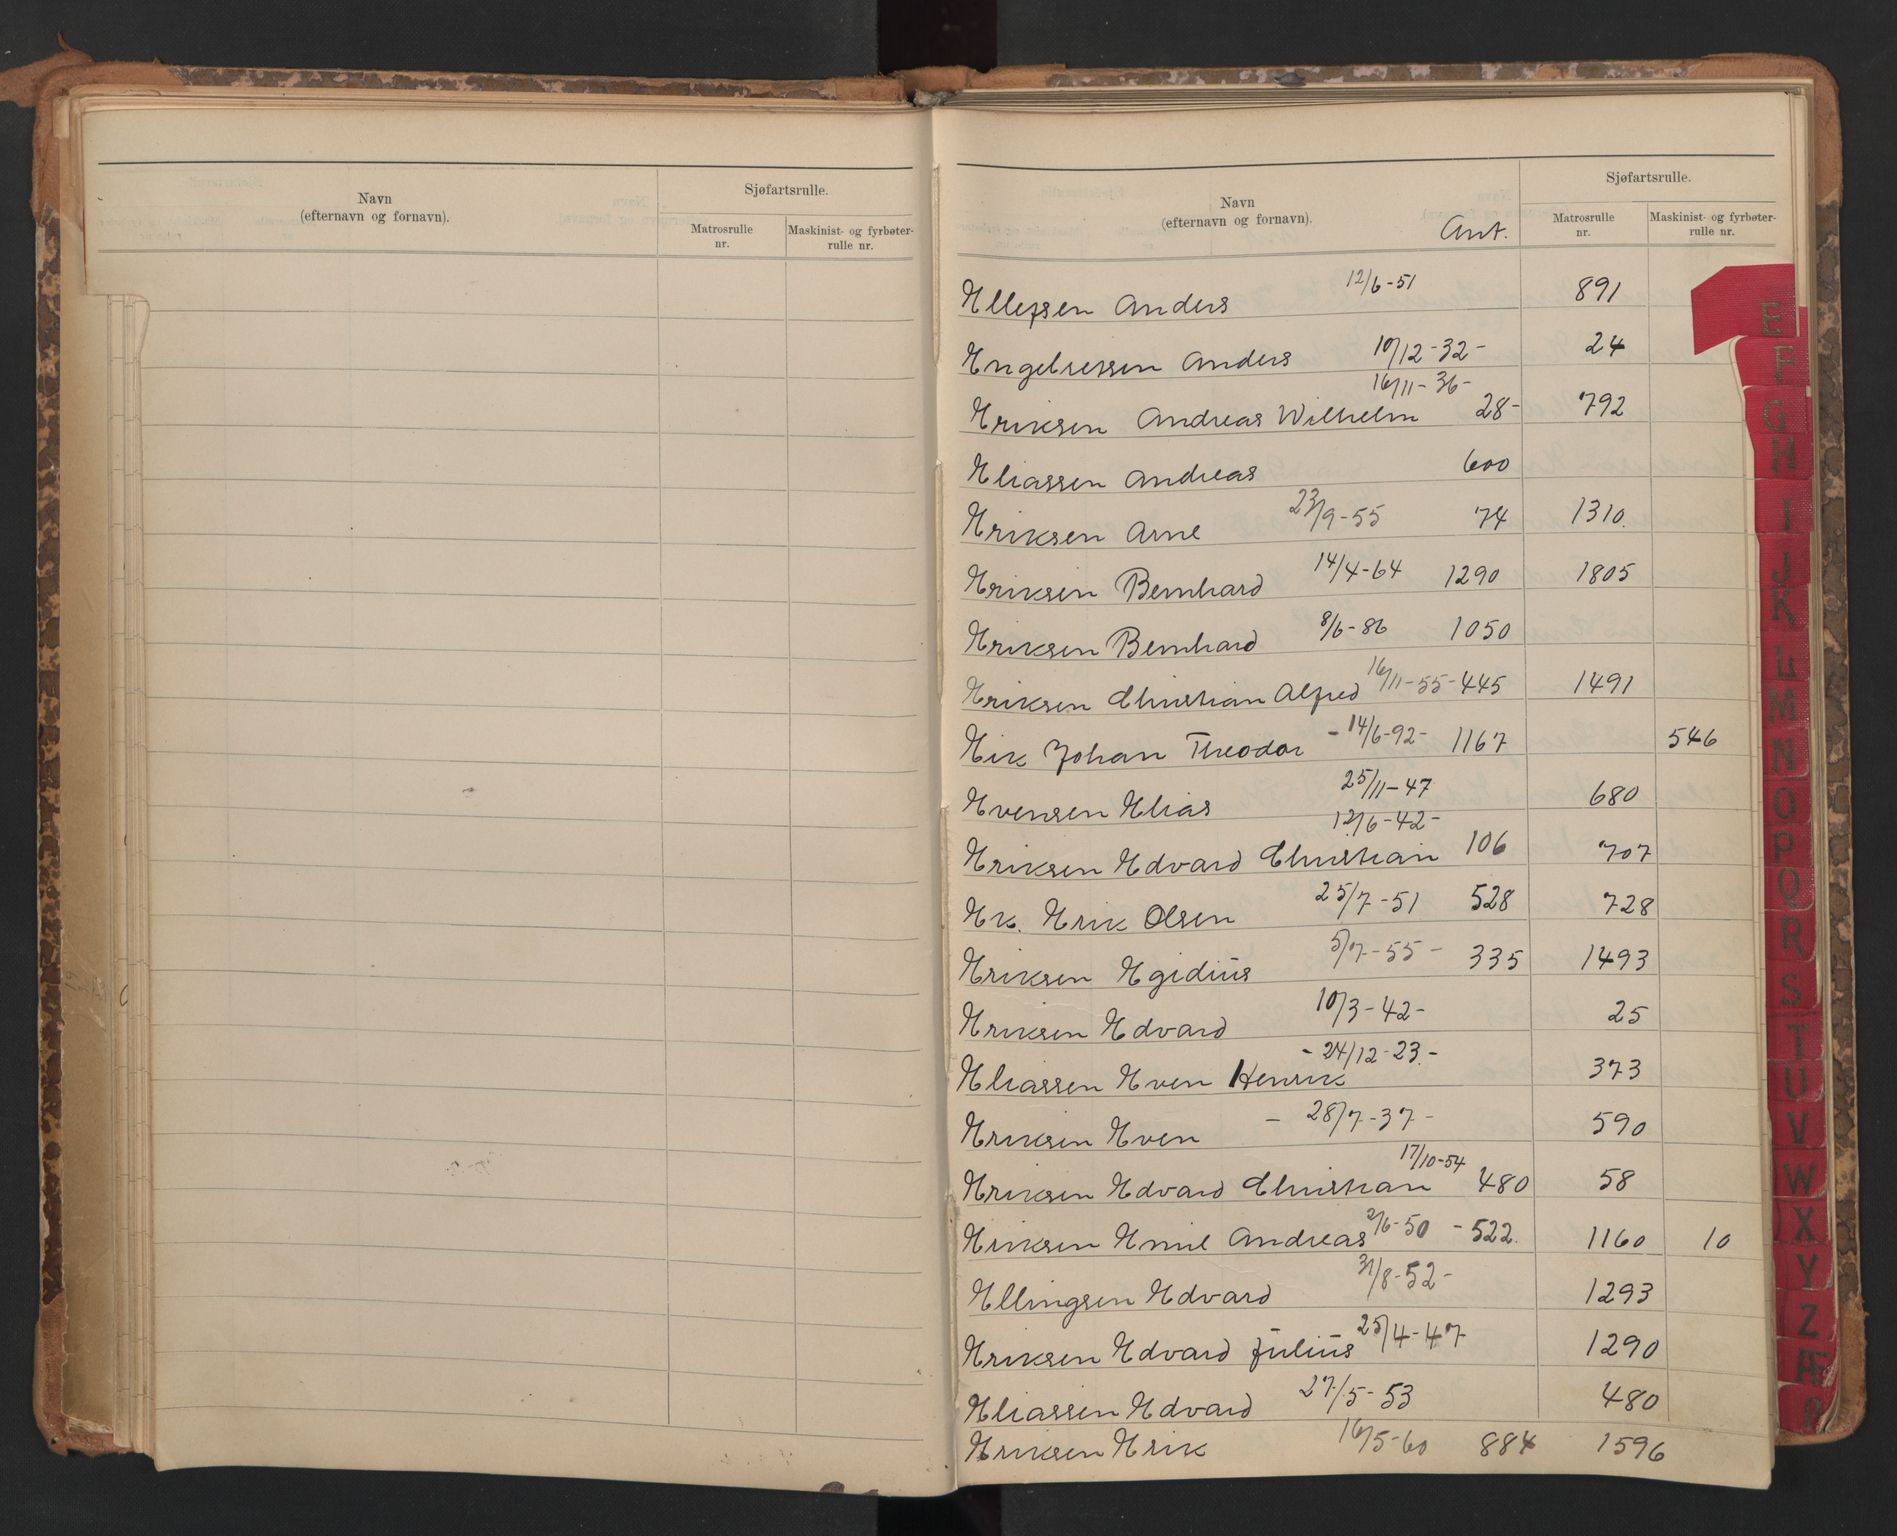 Navn
(efternavn og fornavn).
Sjøfartsrulle.
Matrosrulle
nr.
Maskinist- og fyrbøter-
rulle nr.
Navn
(efternavn og fornavn).
Ant.
Sjøfartsrulle.
Matrosrulle
nr.
Maskinist- og fyrbøter-
rulle nr.
Ellefsen Anders 12/6-51 891
Engebretsen Anders 10/12-32- 24
Eriksen Andreas Wilhelm 16/11-36- 28- 792
Eliassen Andreas 600
Eriksen Arne 23/9-55 74 1310.
Eriksen Bernhard 14/4-64 1290 1805
Eriksen Bernhard 8/6-86 1050
Eriksen Christian Alfred 16/11-55-445 1491
Eik Johan Theodor -14/6-92- 1167 546
Evensen Elias 25/11-47 680
Eriksen Edvard Christian 12/6-42- 106 707
Ek. Erik Olsen 25/7-51 528 728
Eriksen Egidius 5/7-55- 335 1493
Eriksen Edvard 10/3-42- 25
Eliassen Even Henrik -24/12-23.- 373
Eriksen Even - 28/7-37- 590
Eriksen Edvard Christian 17/10-54 480 58
Eriksen Emil Andreas 2/6-50 -522. 1160 10
Ellingsen Edvard 31/8-52- 1293
Eriksen Edvard Julius 25/4-47- 1290
Eliassen Edvard 27/5-53 480
Eriksen Erik 16/5-60 884 1596
E
F
G
H
I
J
K
L
M
N
O
P
Q
R
S
T
U
V
W
X
Y
Z
Æ